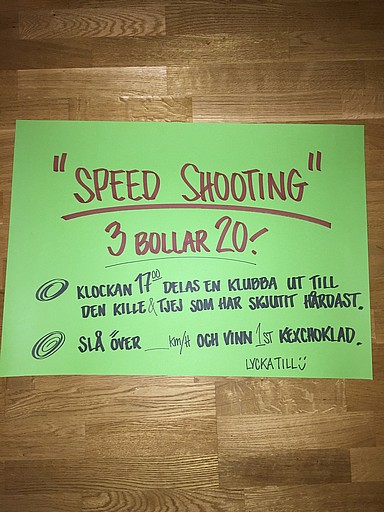 "SPEED SHOOTING"
3 BOLLAR 20!
KLOCKAN 17⁰⁰ DELAS EN KLUBBA UT TILL
DEN KILLE & TJEJ SOM HAR SKJUTIT HÅRDAST.
SLÅ ÖVER ___ KM/H OCH VINN 1ST KEXCHOKLAD.
LYCKA TILL :)